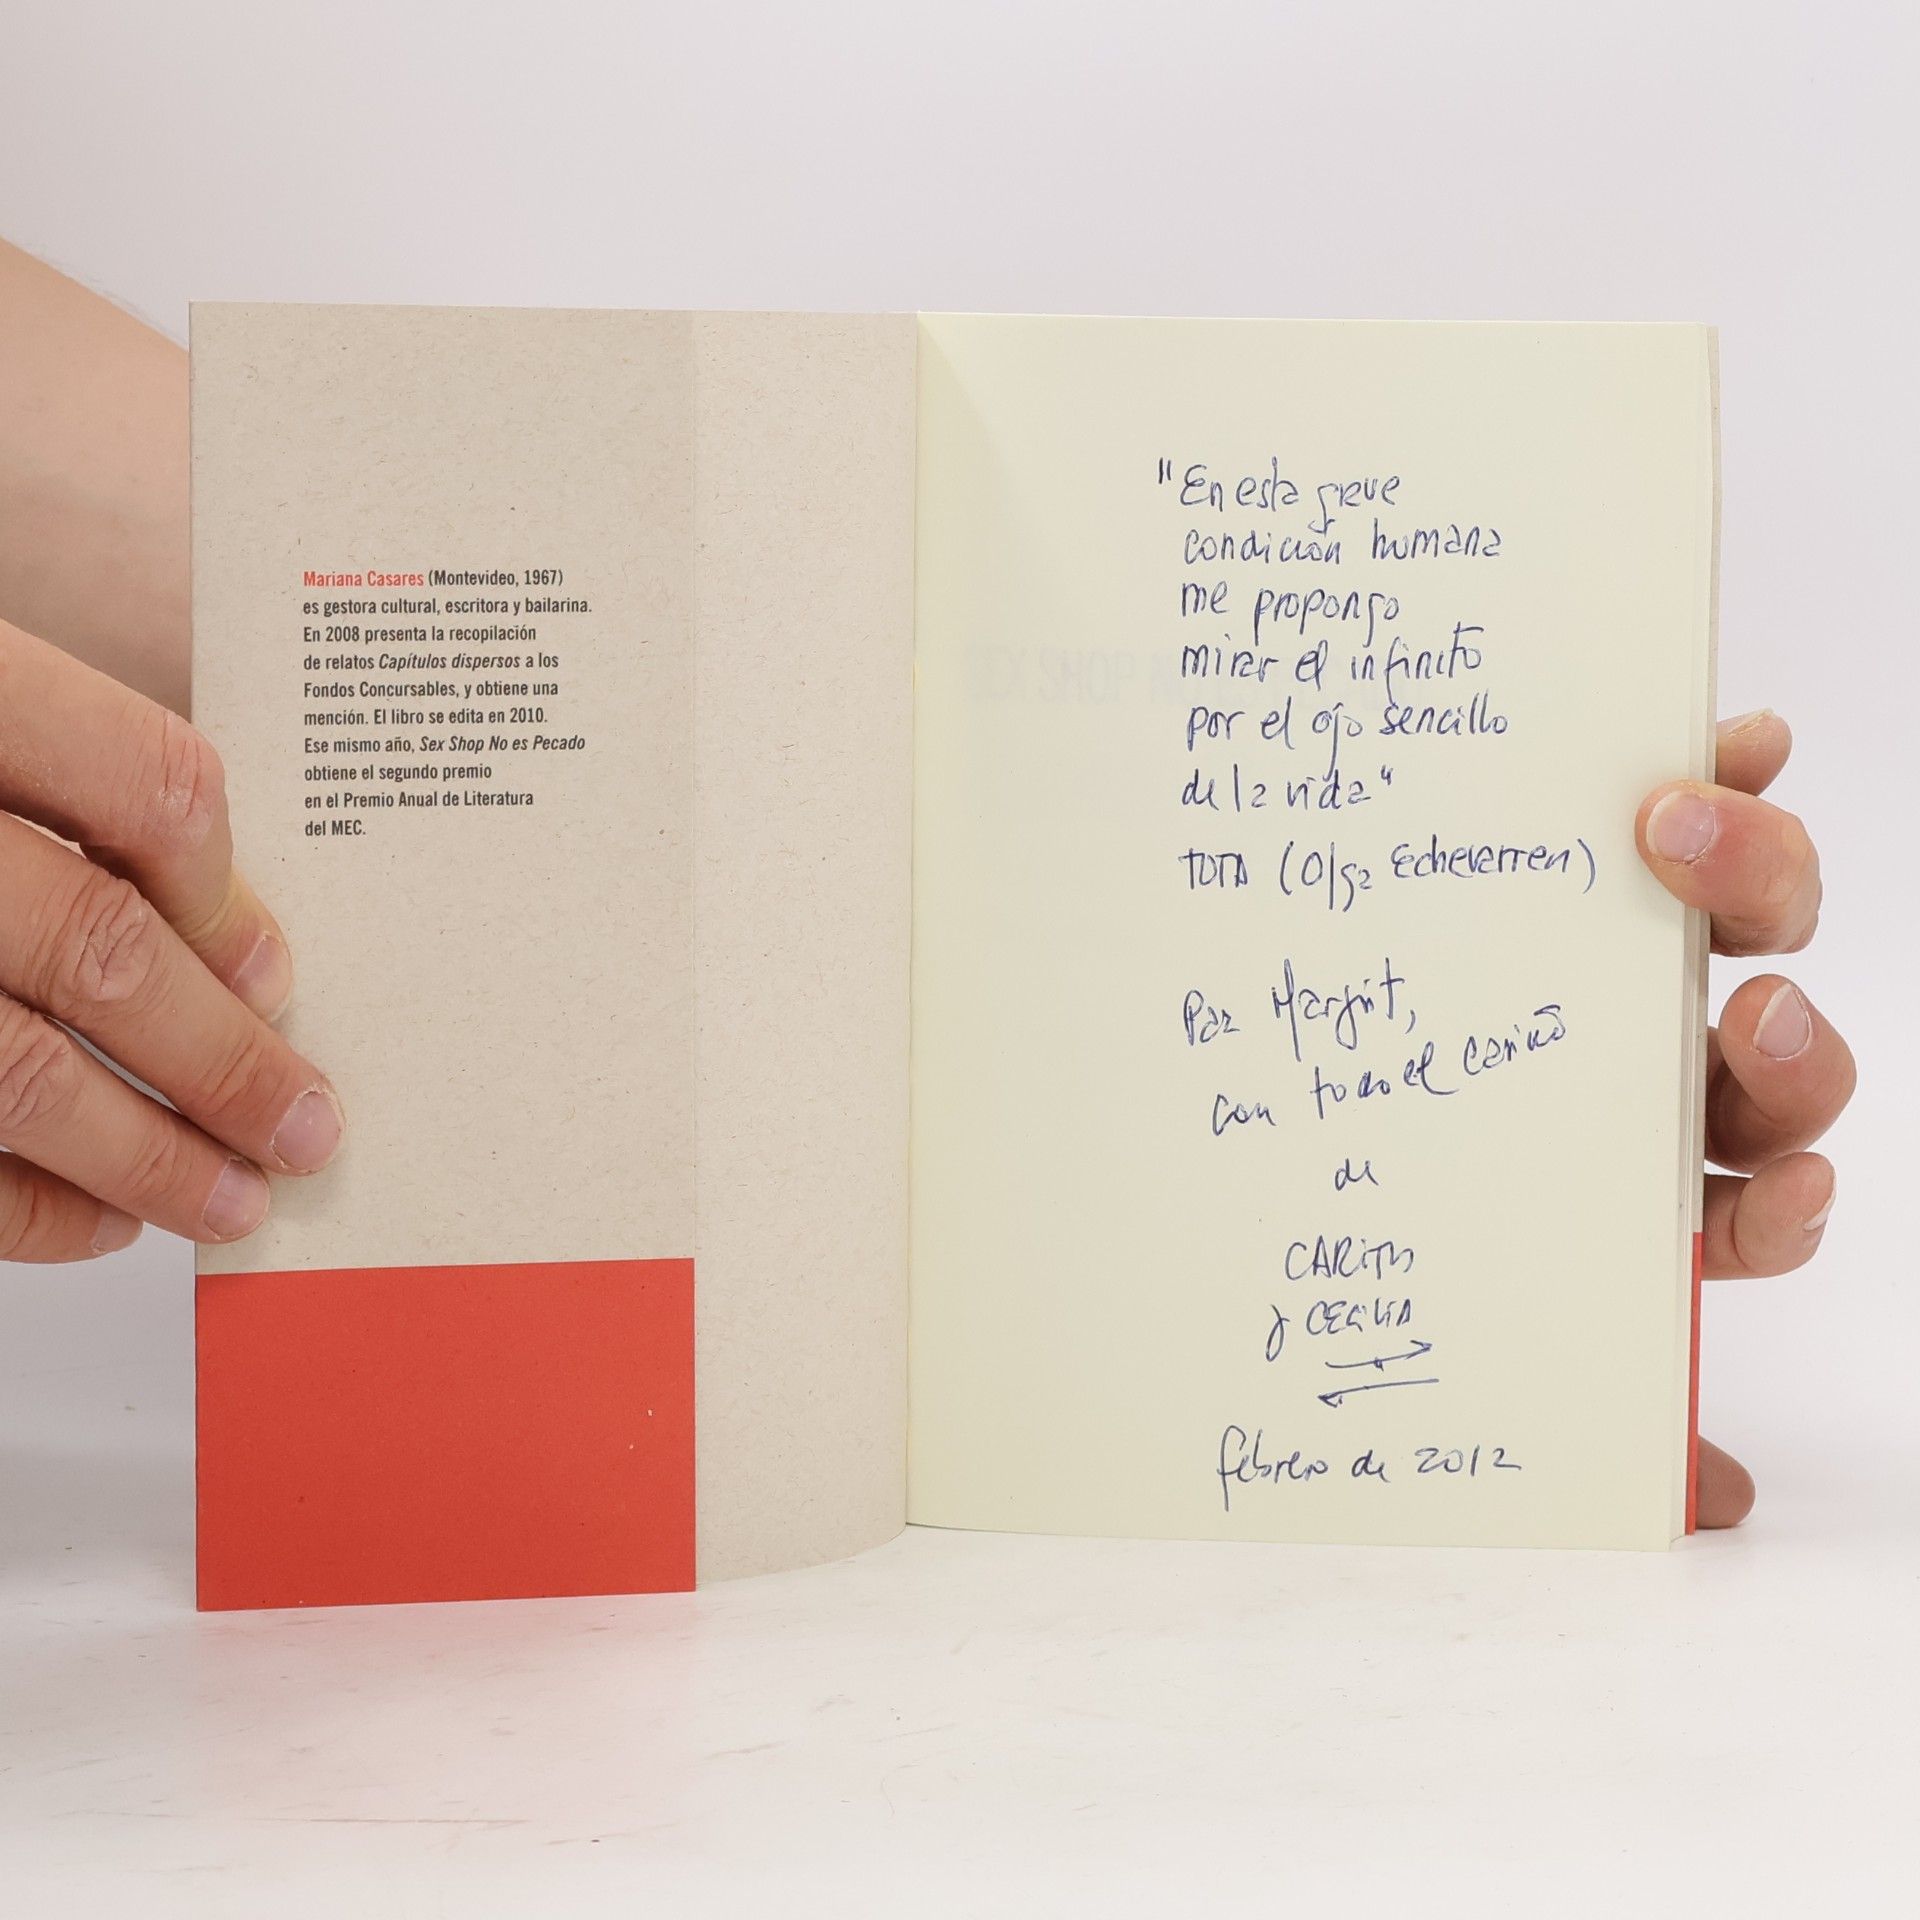 Mariana Casares (Montevideo, 1967)
es gestora cultural, escritora y bailarina.
En 2008 presenta la recopilación
de relatos Capítulos dispersos a los
Fondos Concursables, y obtiene una
mención. El libro se edita en 2010.
Ese mismo año, Sex Shop No es Pecado
obtiene el segundo premio
en el Premio Anual de Literatura
del MEC.
"En esta greve
condición humana
me propongo
mirar el infinito
por el ojo sencillo
de la vida"
TOTA (Olga Echevarren)
Para Margrit,
con todo el cariño
de
CARITAS
y CECILIA
febrero de 2012